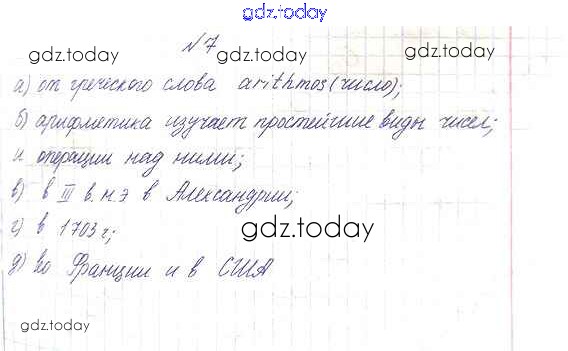 gdz.today
№ 7
gdz.today gdz.today gdz.today
а) от греческого слова arithmos (число);
б) арифметика изучает простейшие виды чисел;
и операции над ними;
в) в III в. н.э в Александрии;
г) в 1703 г;
gdz.today
д) во Франции и в США
gdz.today gdz.today